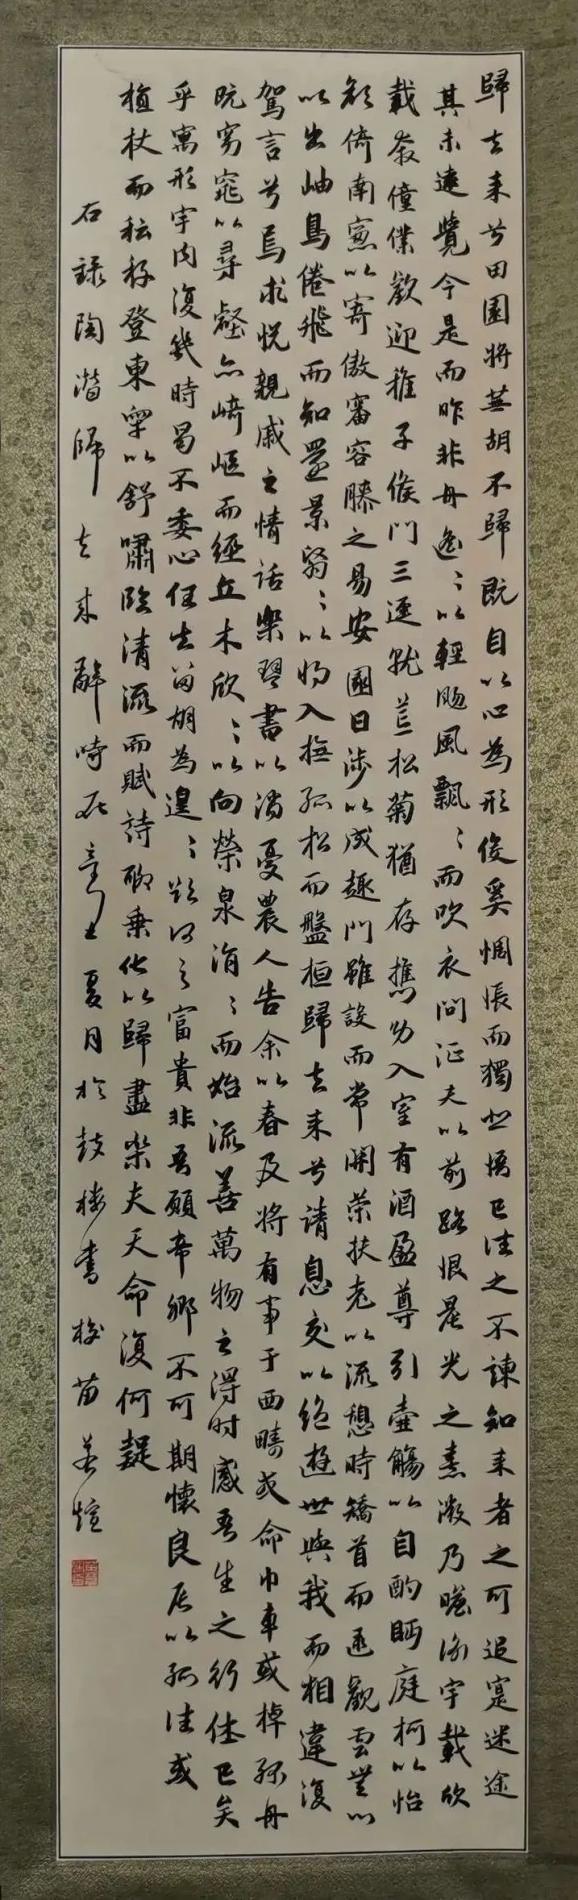 歸去来兮田園將蕪胡不歸既自以心為形役奚惆悵而獨悲悟已往之不諫知来者之可追寔迷途
其未遠覺今是而昨非舟遙〻以輕颺風飄〻而吹衣問征夫以前路恨晨光之熹微乃瞻衡宇載欣
載奔僮僕歡迎稚子候門三逕就荒松菊猶存攜幼入室有酒盈尊引壺觴以自酌眄庭柯以怡
顏倚南窓以寄傲審容膝之易安園日涉以成趣門雖設而常関策扶老以流憩時矯首而遐觀雲無心
以出岫鳥倦飛而知還景翳〻以將入撫孤松而盤桓歸去来兮請息交以絕遊世與我而相違復
駕言兮焉求悅親戚之情話樂琴書以消憂農人告余以春及將有事于西疇或命巾車或棹孤舟
既窈窕以尋壑亦崎嶇而經丘木欣〻以向榮泉涓〻而始流善萬物之得时感吾生之行休已矣
乎寓形宇内復幾時曷不委心任去留胡為遑〻欲何之富貴非吾願帝鄉不可期懷良辰以孤往或
植杖而耘耔登東皋以舒嘯臨清流而賦詩聊乗化以歸盡樂夫天命復何疑
右錄陶潛歸去来辭時在夏月於鼓樓書